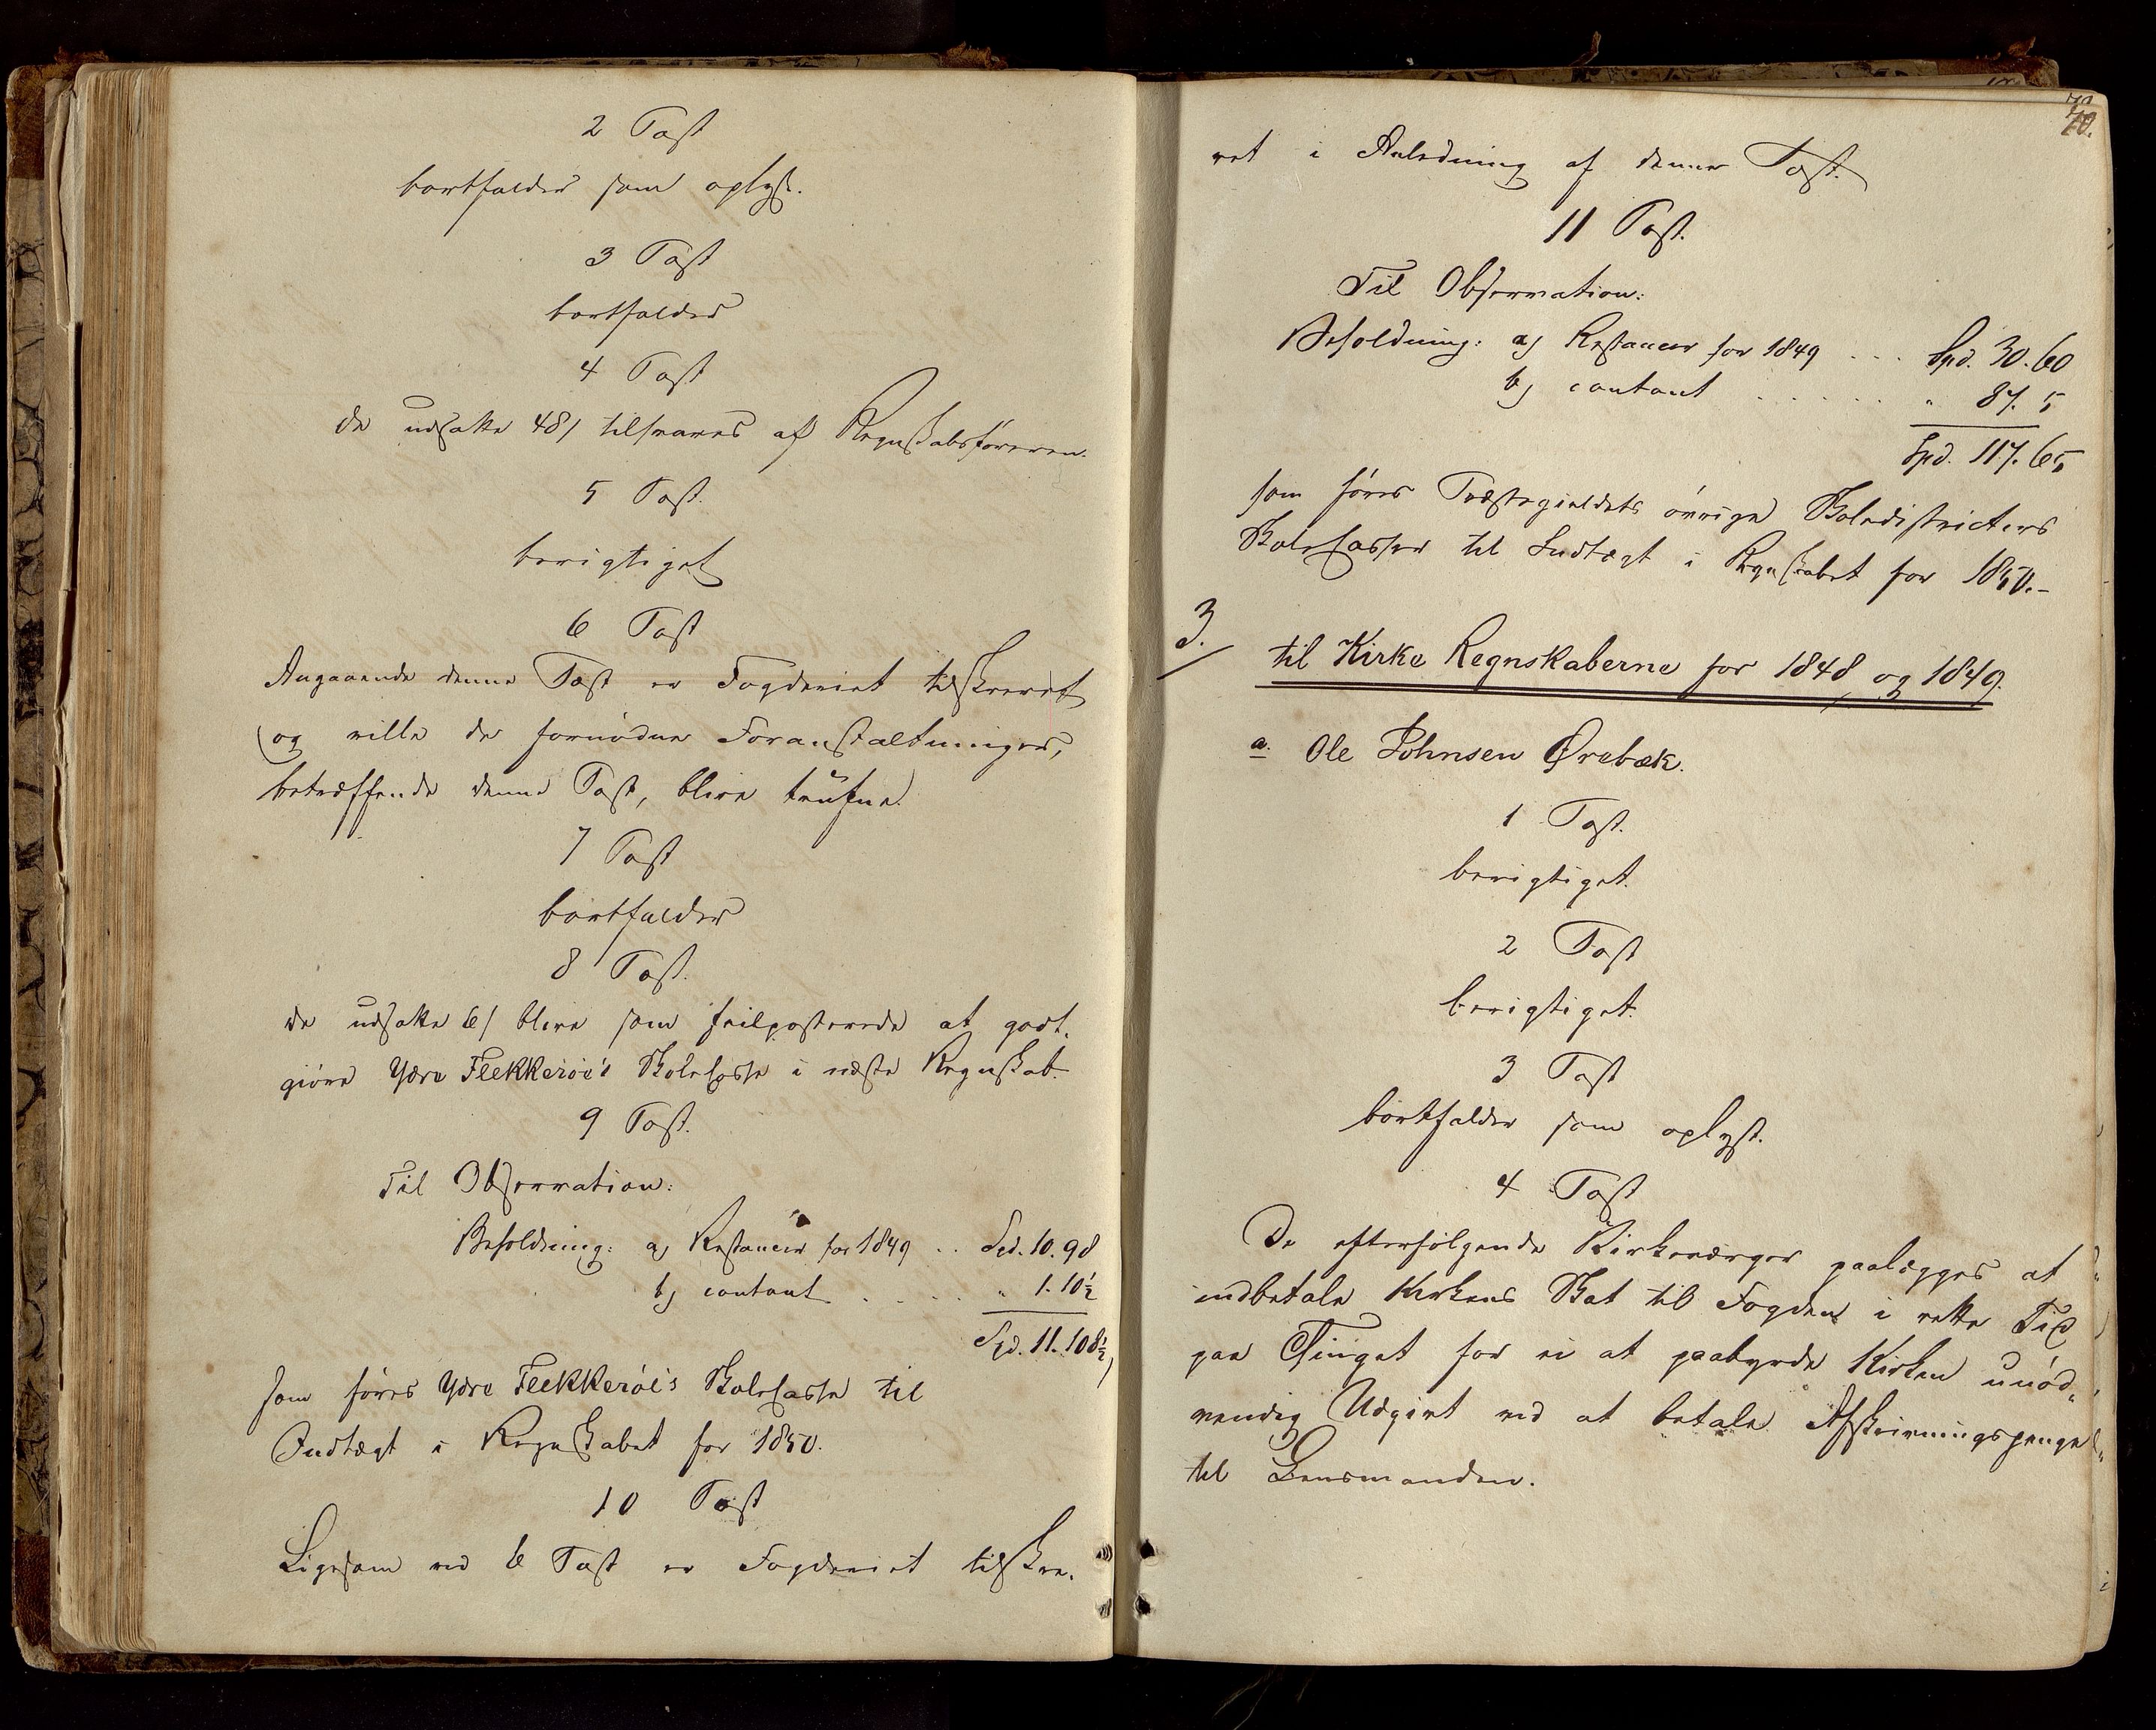 2 Post
bortfalder som oplyst.
3 Post
bortfalder
4 Post
de udsatte 48/ tilsvares af Regnskabsføreren.
5 Post.
berigtiget
6 Post
Angaaende denne Post er Fogderiet tilskrevet
og ville de fornødne Foranstaltninger,
betræffende denne Post, blive trufne.
7 Post
bortfalder
8 Post.
de udsatte 6/ blive som feilposterede at godt-
giøre Ydre Flekkerøe's Skolekasse i næste Regnskab.
9 Post.
Til Observation:
Beholdning: a) Restancer for 1849 .. Spd. 10. 98
b) contant . . . . . " 1. 10½
Spd. 11. 108½,
som føres Ydre Flekkerøe's Skolekasse til
Indtægt i Regnskabet for 1850.
10 Post
Ligesom ved 6 Post er Fogderiet tilskre-
70.
vet i Anledning af denne Post.
11 Post.
Til Observation:
Beholdning: a) Restancer for 1849 ... Spd. 30. 60
b) contant . . . . . . " 87. 5
Spd. 117. 65
som føres Præstegieldets øvrige Skoledistricters
Skolekasser til Indtægt i Regnskabet for 1850.-
3.
til Kirke Regnskaberne for 1848 og 1849.
a. Ole Johnsen Ørebæk.
1 Post.
berigtiget.
2 Post
berigtiget.
3 Post
bortfalder som oplyst.
4 Post
De efterfølgende Kirkeværger paalægges at
indbetale Kirkens Skat til Fogden i rette Tid
paa Thinget for ei at paabyrde Kirken unød-
vendig Udgivt ved at betale Afskrivningspenge
til Lensmanden.